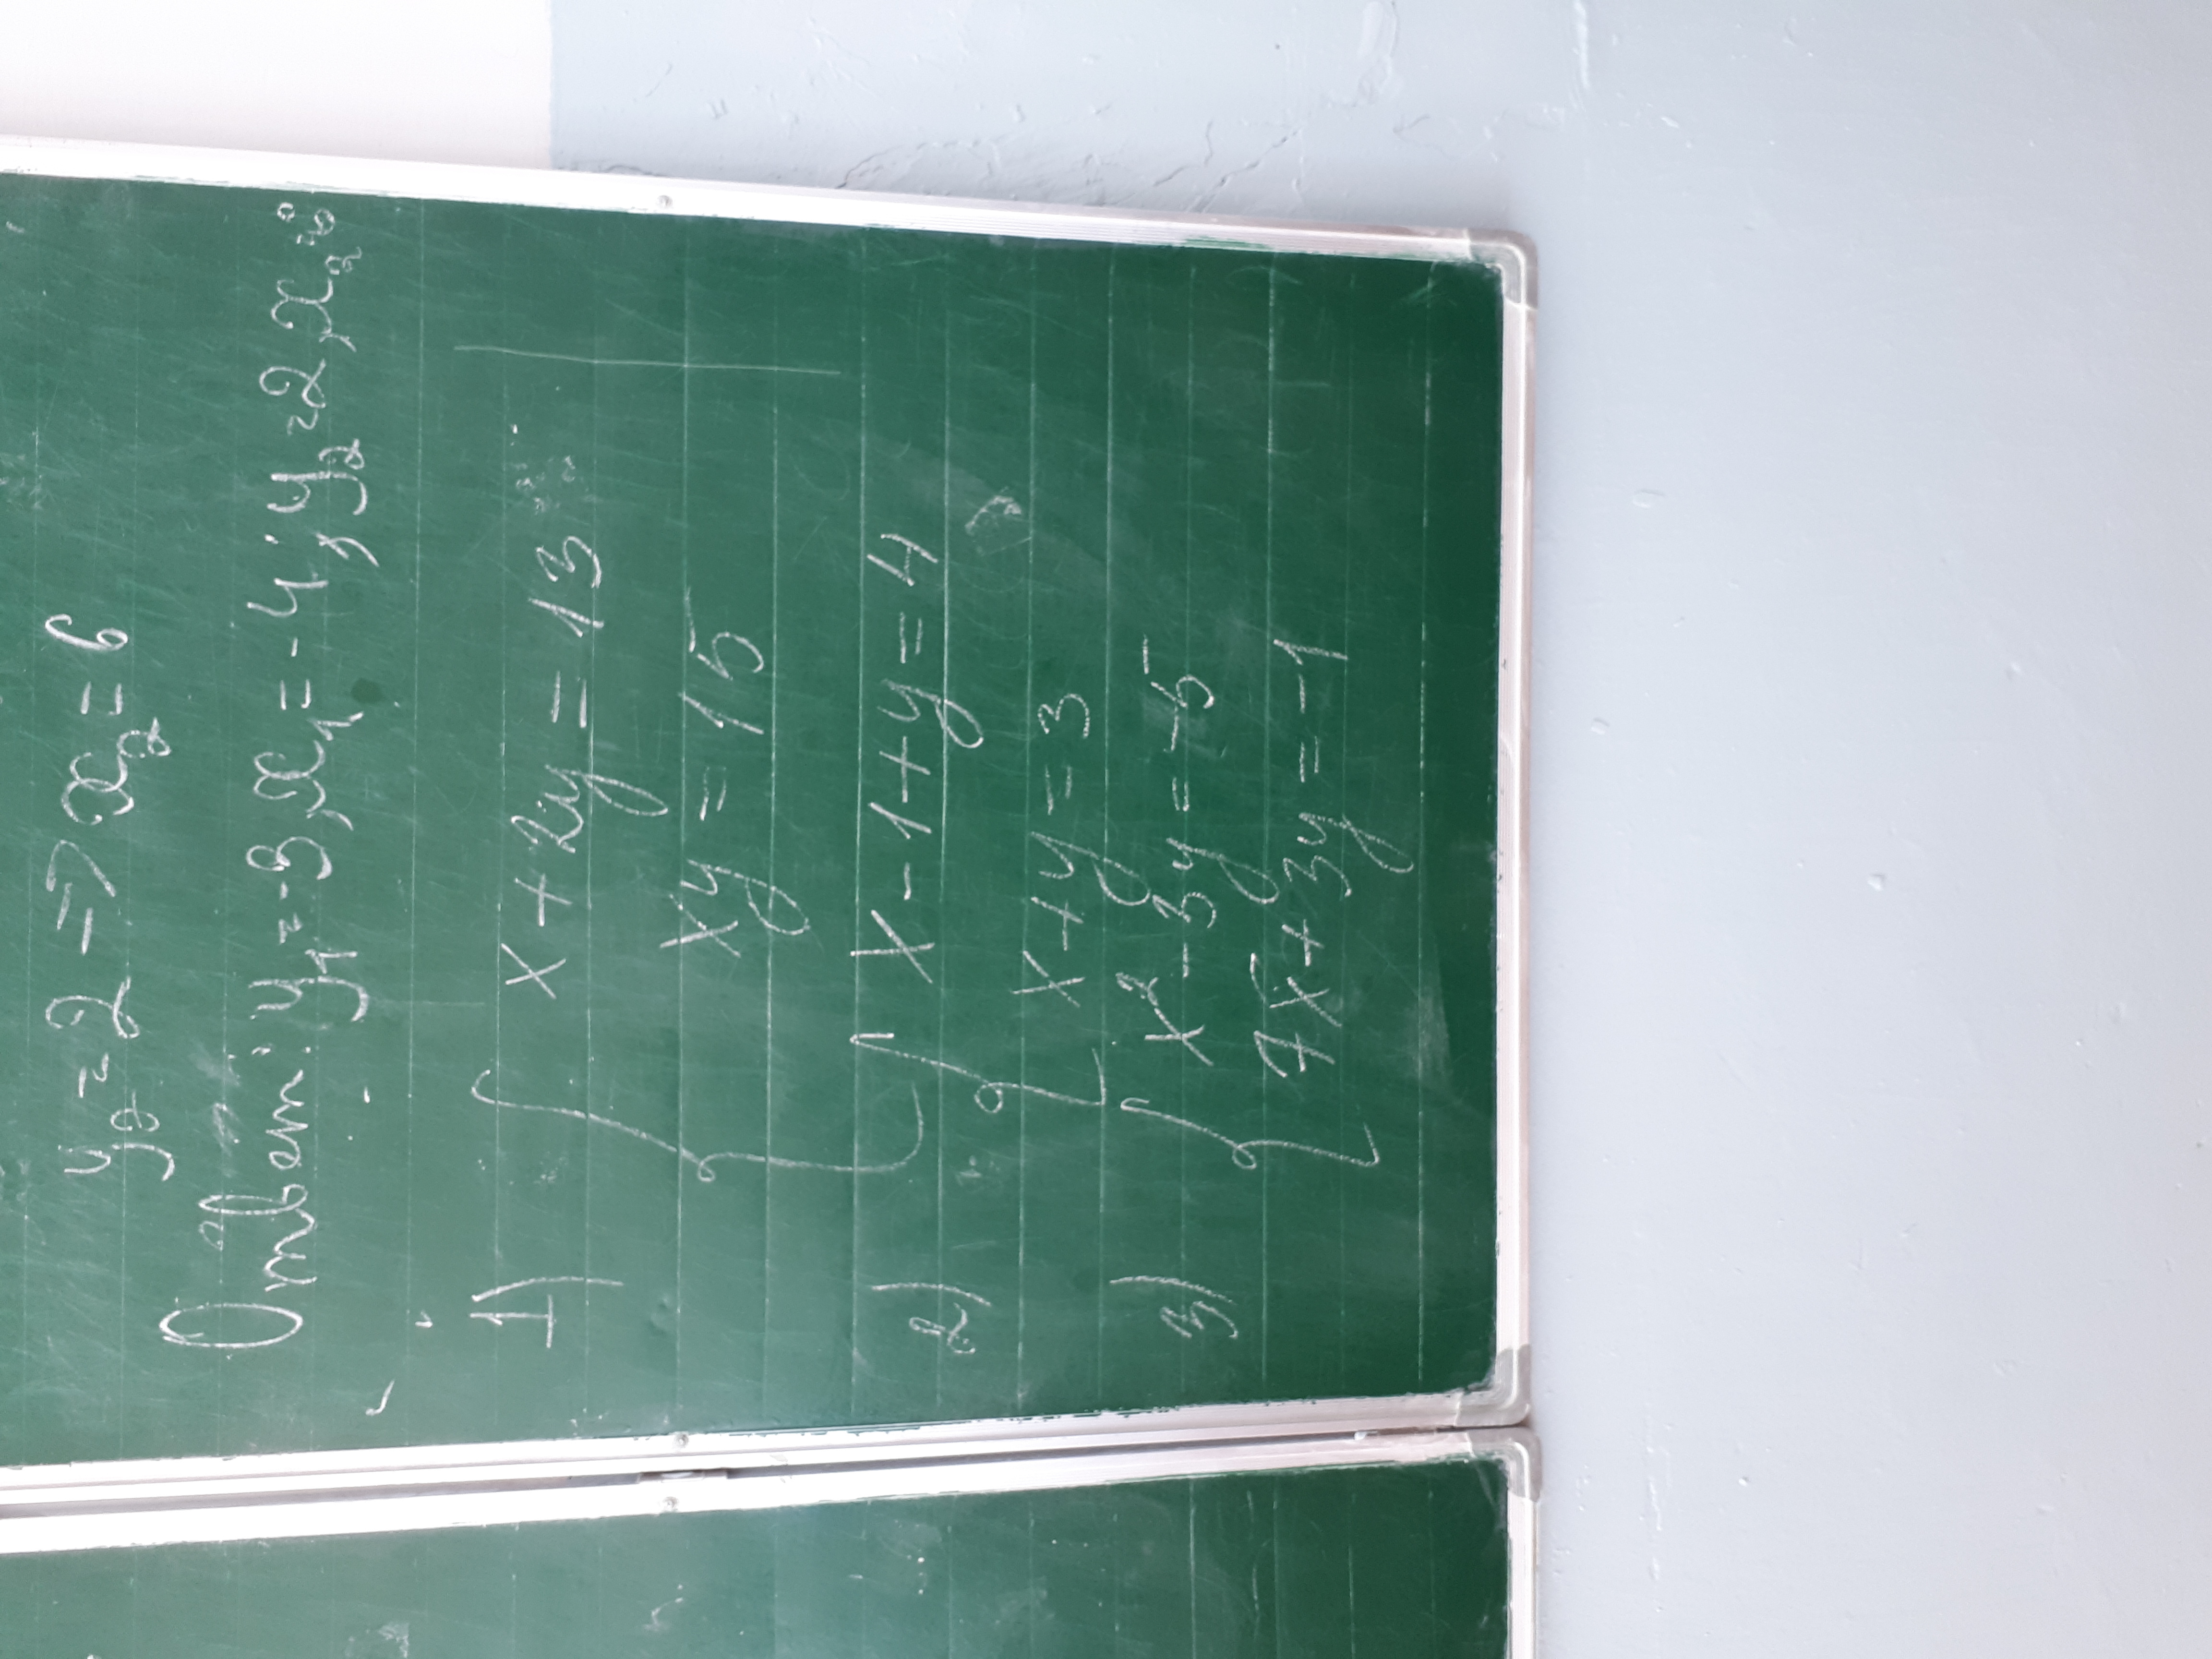 y₂=2 => x₂=6
Ответ: y₁=-3, x₁=-4; y₂=2, x₂=6
1) { x+2y=13
xy=15
2) { x-1+y=4
x+y=3
3) { x²-3y=-5
7x+3y=-1